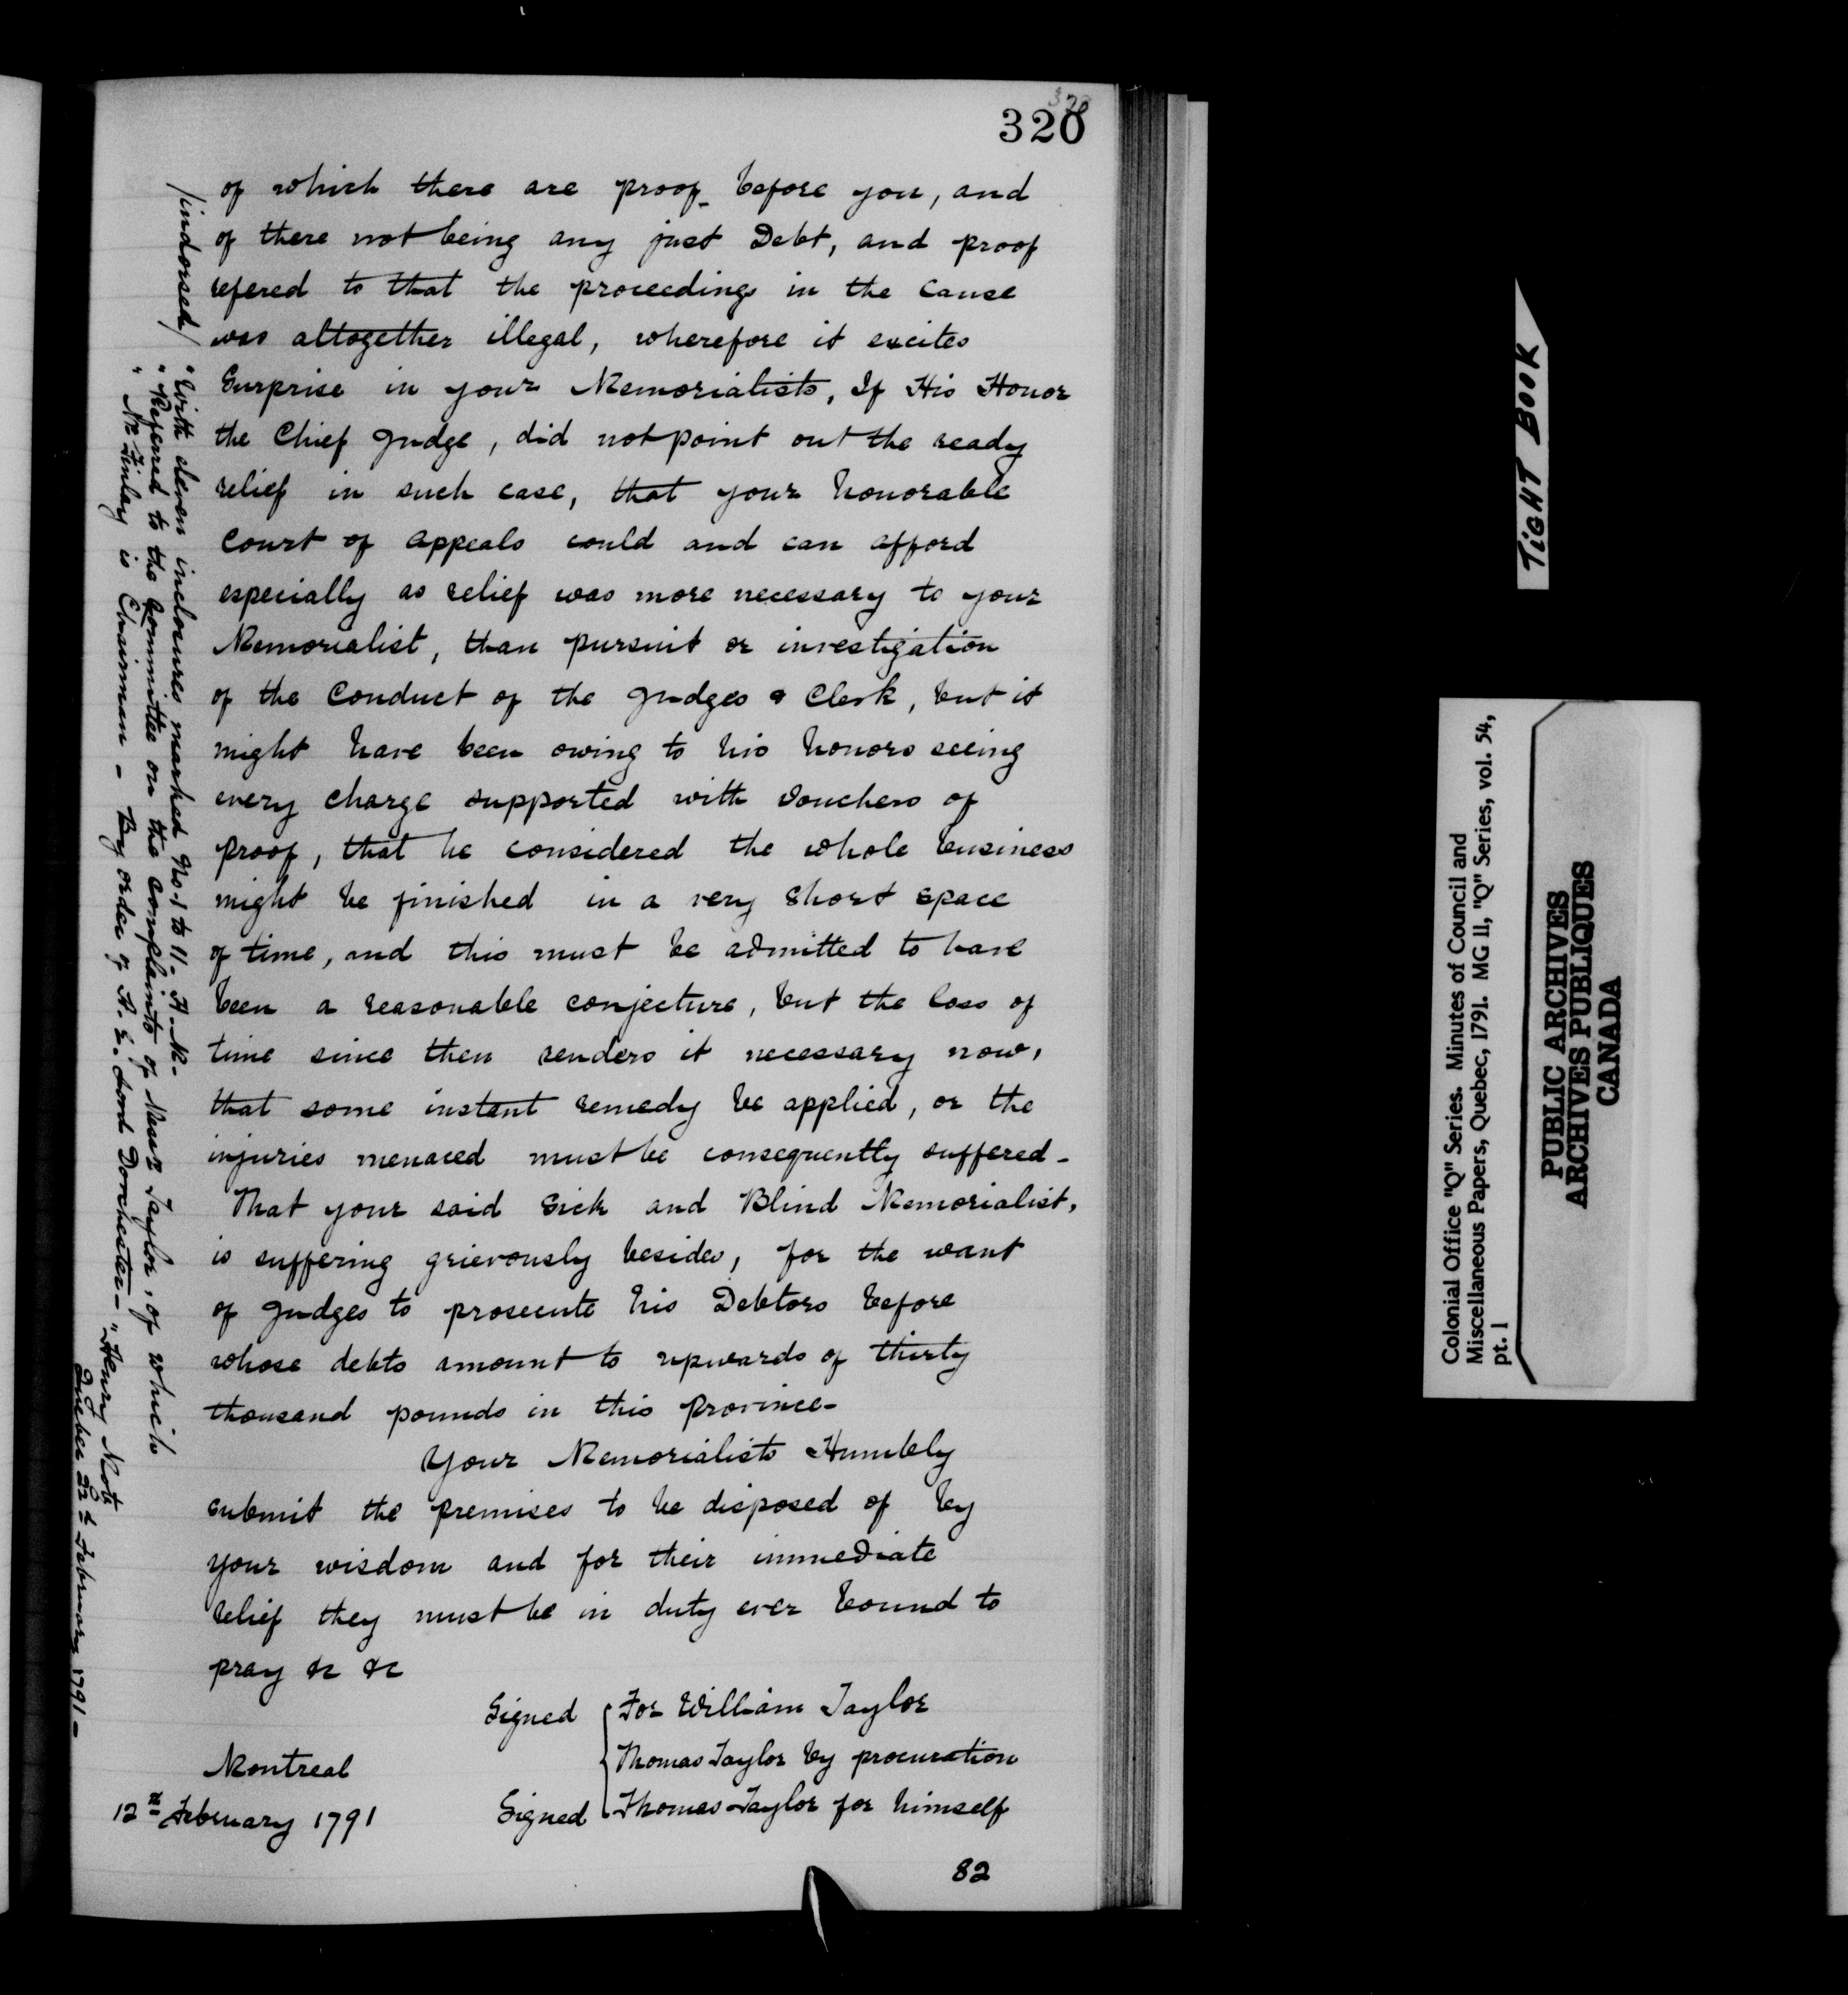 320
320
of which there are proof before you, and
of there not being any just Debt, and proof
refered to that the proceedings in the Cause
was altogether illegal, wherefore it excites
Surprise in your Memorialists, If His Honor
the Chief Judge, did not point out the ready
relief in such case, that your honorable
Court of Appeals could and can afford
especially as relief was more necessary to your
Memorialist, than pursuit or investigation
of the Conduct of the Judges & Clerk, but it
might have been owing to his honors seeing
every charge supported with vouchers of
proof, that he considered the whole business
might be finished in a very short space
of time, and this must be admitted to have
been a reasonable conjecture, but the loss of
time since then renders it necessary now,
that some instant remedy be applied, or the
injuries menaced must be consequently suffered -
That your said Sick and Blind Memorialist,
is suffering grievously besides, for the want
of Judges to prosecute his Debtors before
whose debts amount to upwards of thirty
thousand pounds in this Province -
Your Memorialists Humbly
submit the premises to be disposed of by
your wisdom and for their immediate
relief they must be in duty ever bound to
pray &c &c
Signed For William Taylor
Thomas Taylor by procuration
Signed Thomas Taylor for himself
Montreal
12th February 1791
82
/indorsed/ "With eleven inclosures marked No. 1 to 11 - H. M. -
"Refered to the Committee on the complaints of Messr Taylor, of which
" Mr Finlay is Chairman - By order of H. E. Lord Dorchester - "Henry Motz
Quebec 22d February 1791 -
TIGHT BOOK
Colonial Office "Q" Series. Minutes of Council and
Miscellaneous Papers, Quebec, 1791. MG 11, "Q" Series, vol. 54,
pt. 1
PUBLIC ARCHIVES
ARCHIVES PUBLIQUES
CANADA